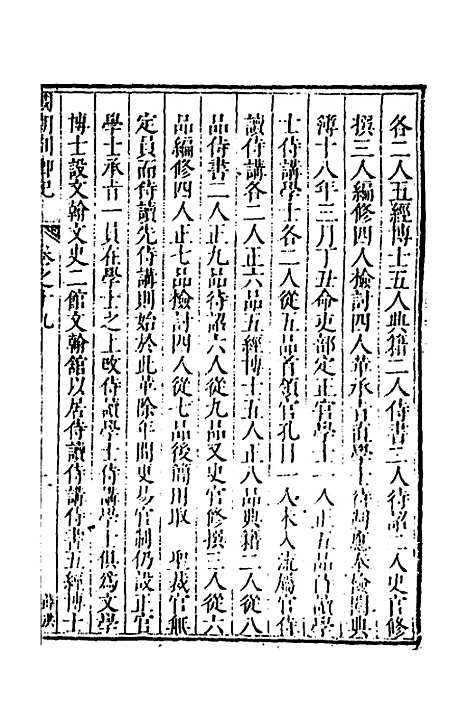 各二人五經博士五人典籍二人侍書二人待詔二人史官修
撰三人編修四人檢討四人革承旨直學士待制應奉檢閱典
簿十八年三月丁丑命吏部定正官學士一人正五品侍讀學
士侍講學士各二人從五品首領官孔目一人未入流屬官侍
讀侍講各二人正六品五經博士五人正八品典籍二人從八
品侍書二人正九品待詔六人從九品又史官修撰三人從六
品編修四人正七品檢討四人從七品後簡用取 聖裁官無
定員而侍讀先侍講則始於此革除年間更易官制仍設正官
學士承旨一員在學士之上改侍讀學士侍講學士俱爲文學
博士設文翰文史二館文翰舘以居侍讀侍講侍書五經博士
國朝列卿紀 卷之十九